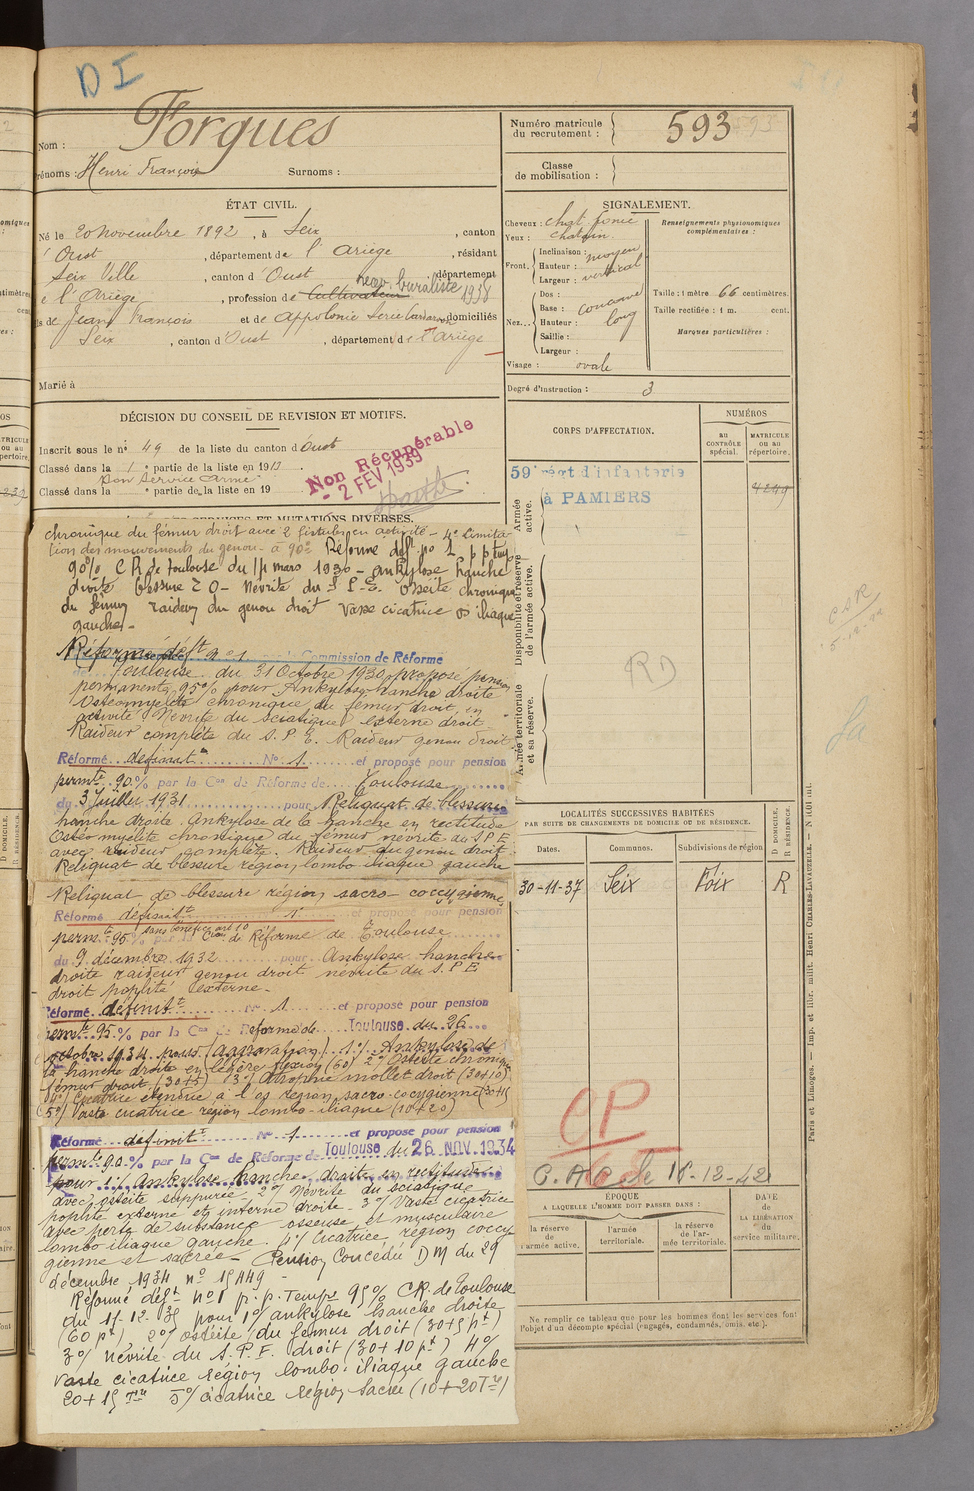 D I
Nom : Forgues
Prénoms : Henri François Surnoms :
Numéro matricule du recrutement : 593
Classe de mobilisation :
ÉTAT CIVIL.
Né le 20 novembre 1892, à Seix, canton
d'Oust, département de l'Ariège, résidant
Seix Ville, canton d'Oust, département
de l'Ariège, profession de Cultivateur recev. buraliste 1938
fils de Jean François et de Appolonie domiciliés
Seix, canton d'Oust, département de l'Ariège
Marié à
SIGNALEMENT.
Cheveux : chat. foncé
Yeux : chatain
Front. Inclinaison : moyen
Hauteur : vertical
Largeur :
Nez... Dos :
Base : concave
Hauteur : long
Saillie :
Largeur :
Visage : ovale
Renseignements physionomiques complémentaires :
Taille : 1 mètre 66 centimètres.
Taille rectifiée : 1 m. cent.
Marques particulières :
Degré d'instruction : 3
DÉCISION DU CONSEIL DE REVISION ET MOTIFS.
Inscrit sous le n° 49 de la liste du canton d'Oust
Classé dans la 1e partie de la liste en 1913
Bon service armé
Classé dans la e partie de la liste en 19
Non Récupérable
- 2 FEV 1939
SERVICES ET MUTATIONS DIVERSES.
chronique du fémur droit avec 2 fistules en activité - 4° limita-
tion des mouvements du genou - à 90° Réforme déf. no 1 p p temp
90% CR de Toulouse du 14 mars 1930 - ankylose hanche
droite blessure - Névrite du S P E. Ostéite chronique
du fémur raideur du genou droit Vaste cicatrice os iliaque
gauche -
Réformé déft n° 1 Commission de Réforme
de Toulouse du 31 Octobre 1930 proposé pension
permanente 95% pour Ankylose hanche droite
Ostéomyélite chronique du fémur droit en
activité Névrite du sciatique externe droit -
Raideur complète du S. P E. Raideur genou droit
Réformé définitt N° 1 et proposé pour pension
permte 90 % par la Con de Réforme de Toulouse
du 3 Juillet 1931 pour Reliquat de blessure
hanche droite. Ankylose de la hanche en rectitude
Ostéomyélite chronique du fémur névrite du S P E
avec raideur complète. Raideur du genou droit
Reliquat de blessure région lombo iliaque gauche
Reliquat de blessure région sacro-coccygienne
Réformé définitt 1 et proposé pour pension
permte 95 % sans bénéfice art 10 par la Con de Réforme de Toulouse
du 9 décembre 1932 pour Ankylose hanche
droite raideur genou droit névrite du S. P E
droit poplité externe -
Réformé définitt n° 1 et proposé pour pension
permte 95 % par la Con de Réforme de Toulouse du 26
octobre 1934 pour (aggravation) 1°/ Ankylose de
la hanche droite en légère flexion (60) 2°/ Ostéite chronique
fémur droit (30+5) 3°/ Atrophie mollet droit (30+10)
4°/ Cicatrice étendue à l'os région sacro-coccygienne (30+15
5°/ Vaste cicatrice région lombo-iliaque (10+20)
Réformé définitt N° 1 et proposé pour pension
permte 90 % par la Con de Réforme de Toulouse du 26 NOV. 1934
pour 1°/ ankylose hanche droite en rectitude
avec ostéite suppurée 2°/ Névrite du sciatique
poplité externe et interne droite. 3°/ Vaste cicatrice
avec perte de substance osseuse et musculaire
lombo iliaque gauche. 4°/ Cicatrice région coccy
gienne et sacrée - Pension concédée D M du 29
décembre 1934 n° 15449 -
Réformé déft n°1 p. p. Temp. 95% CR. de Toulouse
du 11-12-35 pour 1°/ ankylose hanche droite
(60 pt) 2°/ ostéite du fémur droit (30+5 pt)
3°/ Névrite du S. P. E. droit (30+10 pt) 4°/
vaste cicatrice région lombo-iliaque gauche
20+15 5°/ cicatrice région sacrée (10+20)
CORPS D'AFFECTATION.
NUMÉROS
au CONTRÔLE spécial.
MATRICULE ou au répertoire.
Armée active.
59e régt d'infanterie
à PAMIERS
4249
Disponibilité et réserve de l'armée active.
Armée territoriale et sa réserve.
RD
LOCALITÉS SUCCESSIVES HABITÉES
PAR SUITE DE CHANGEMENTS DE DOMICILE OU DE RÉSIDENCE.
Dates. Communes. Subdivisions de région D DOMICILE. R RÉSIDENCE
30-11-37 Seix Foix R
CP
ÉPOQUE
A LAQUELLE L'HOMME DOIT PASSER DANS :
la réserve de l'armée active.
l'armée territoriale.
la réserve de l'armée territoriale.
DATE de LA LIBÉRATION du service militaire.
Ne remplir ce tableau que pour les hommes dont les services font
l'objet d'un décompte spécial (engagés, condamnés, omis, etc.).
Paris et Limoges. — Imp. et libr. milit. Henri CHARLES-LAVAUZELLE.